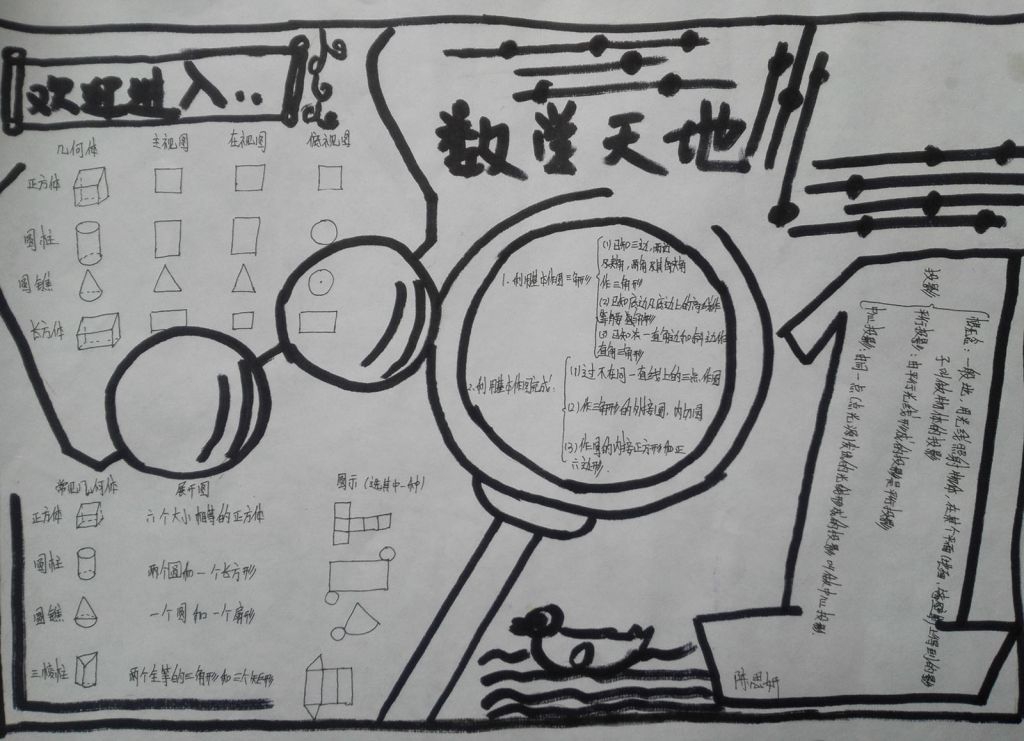 欢迎进入..
数学天地
几何体 主视图 左视图 俯视图
正方体
圆柱
圆锥
长方体
常见几何体 展开图 图示(选其中一种)
正方体 六个大小相等的正方体
圆柱 两个圆和一个长方形
圆锥 一个圆和一个扇形
三棱柱 两个全等的三角形和三个矩形
1.利用基本作图三角形
(1)已知三边,两边
及夹角,两角及其夹角
作三角形
(2)已知底边及底边上的高线作
等腰三角形
(3)已知一直角边和斜边作
直角三角形
2.利用基本作图完成:
(1)过不在同一直线上的三点作圆
(2)作三角形的外接圆、内切圆
(3)作圆的内接正方形和正
六边形.
投影
概念:一般地,用光线照射物体,在某个平面(地面,墙壁等)上得到的影
子叫做物体的投影
平行投影:由平行光线形成的投影是平行投影
中心投影:由同一点(点光源发出的光线形成的投影叫做中心投影
陈思妍